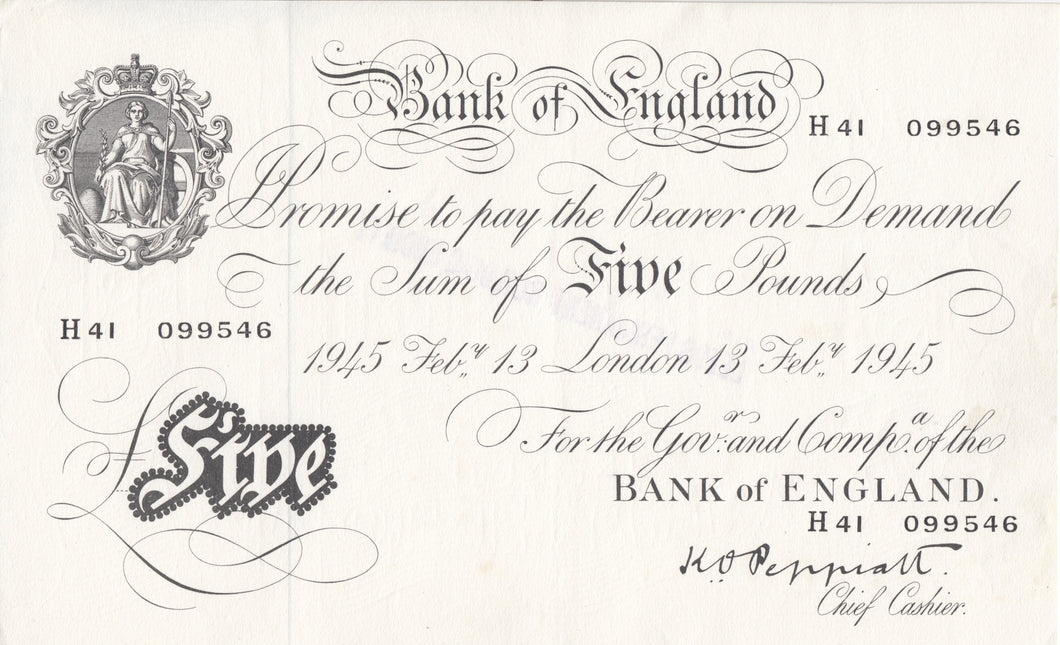 Bank of England
H 41 099546
I Promise to pay the Bearer on Demand
the Sum of Five Pounds
H 41 099546
1945 Feb.y 13 London 13 Feb.y 1945
£Five
For the Gov.r and Comp.a of the
BANK of ENGLAND.
H 41 099546
K O Peppiatt.
Chief Cashier.